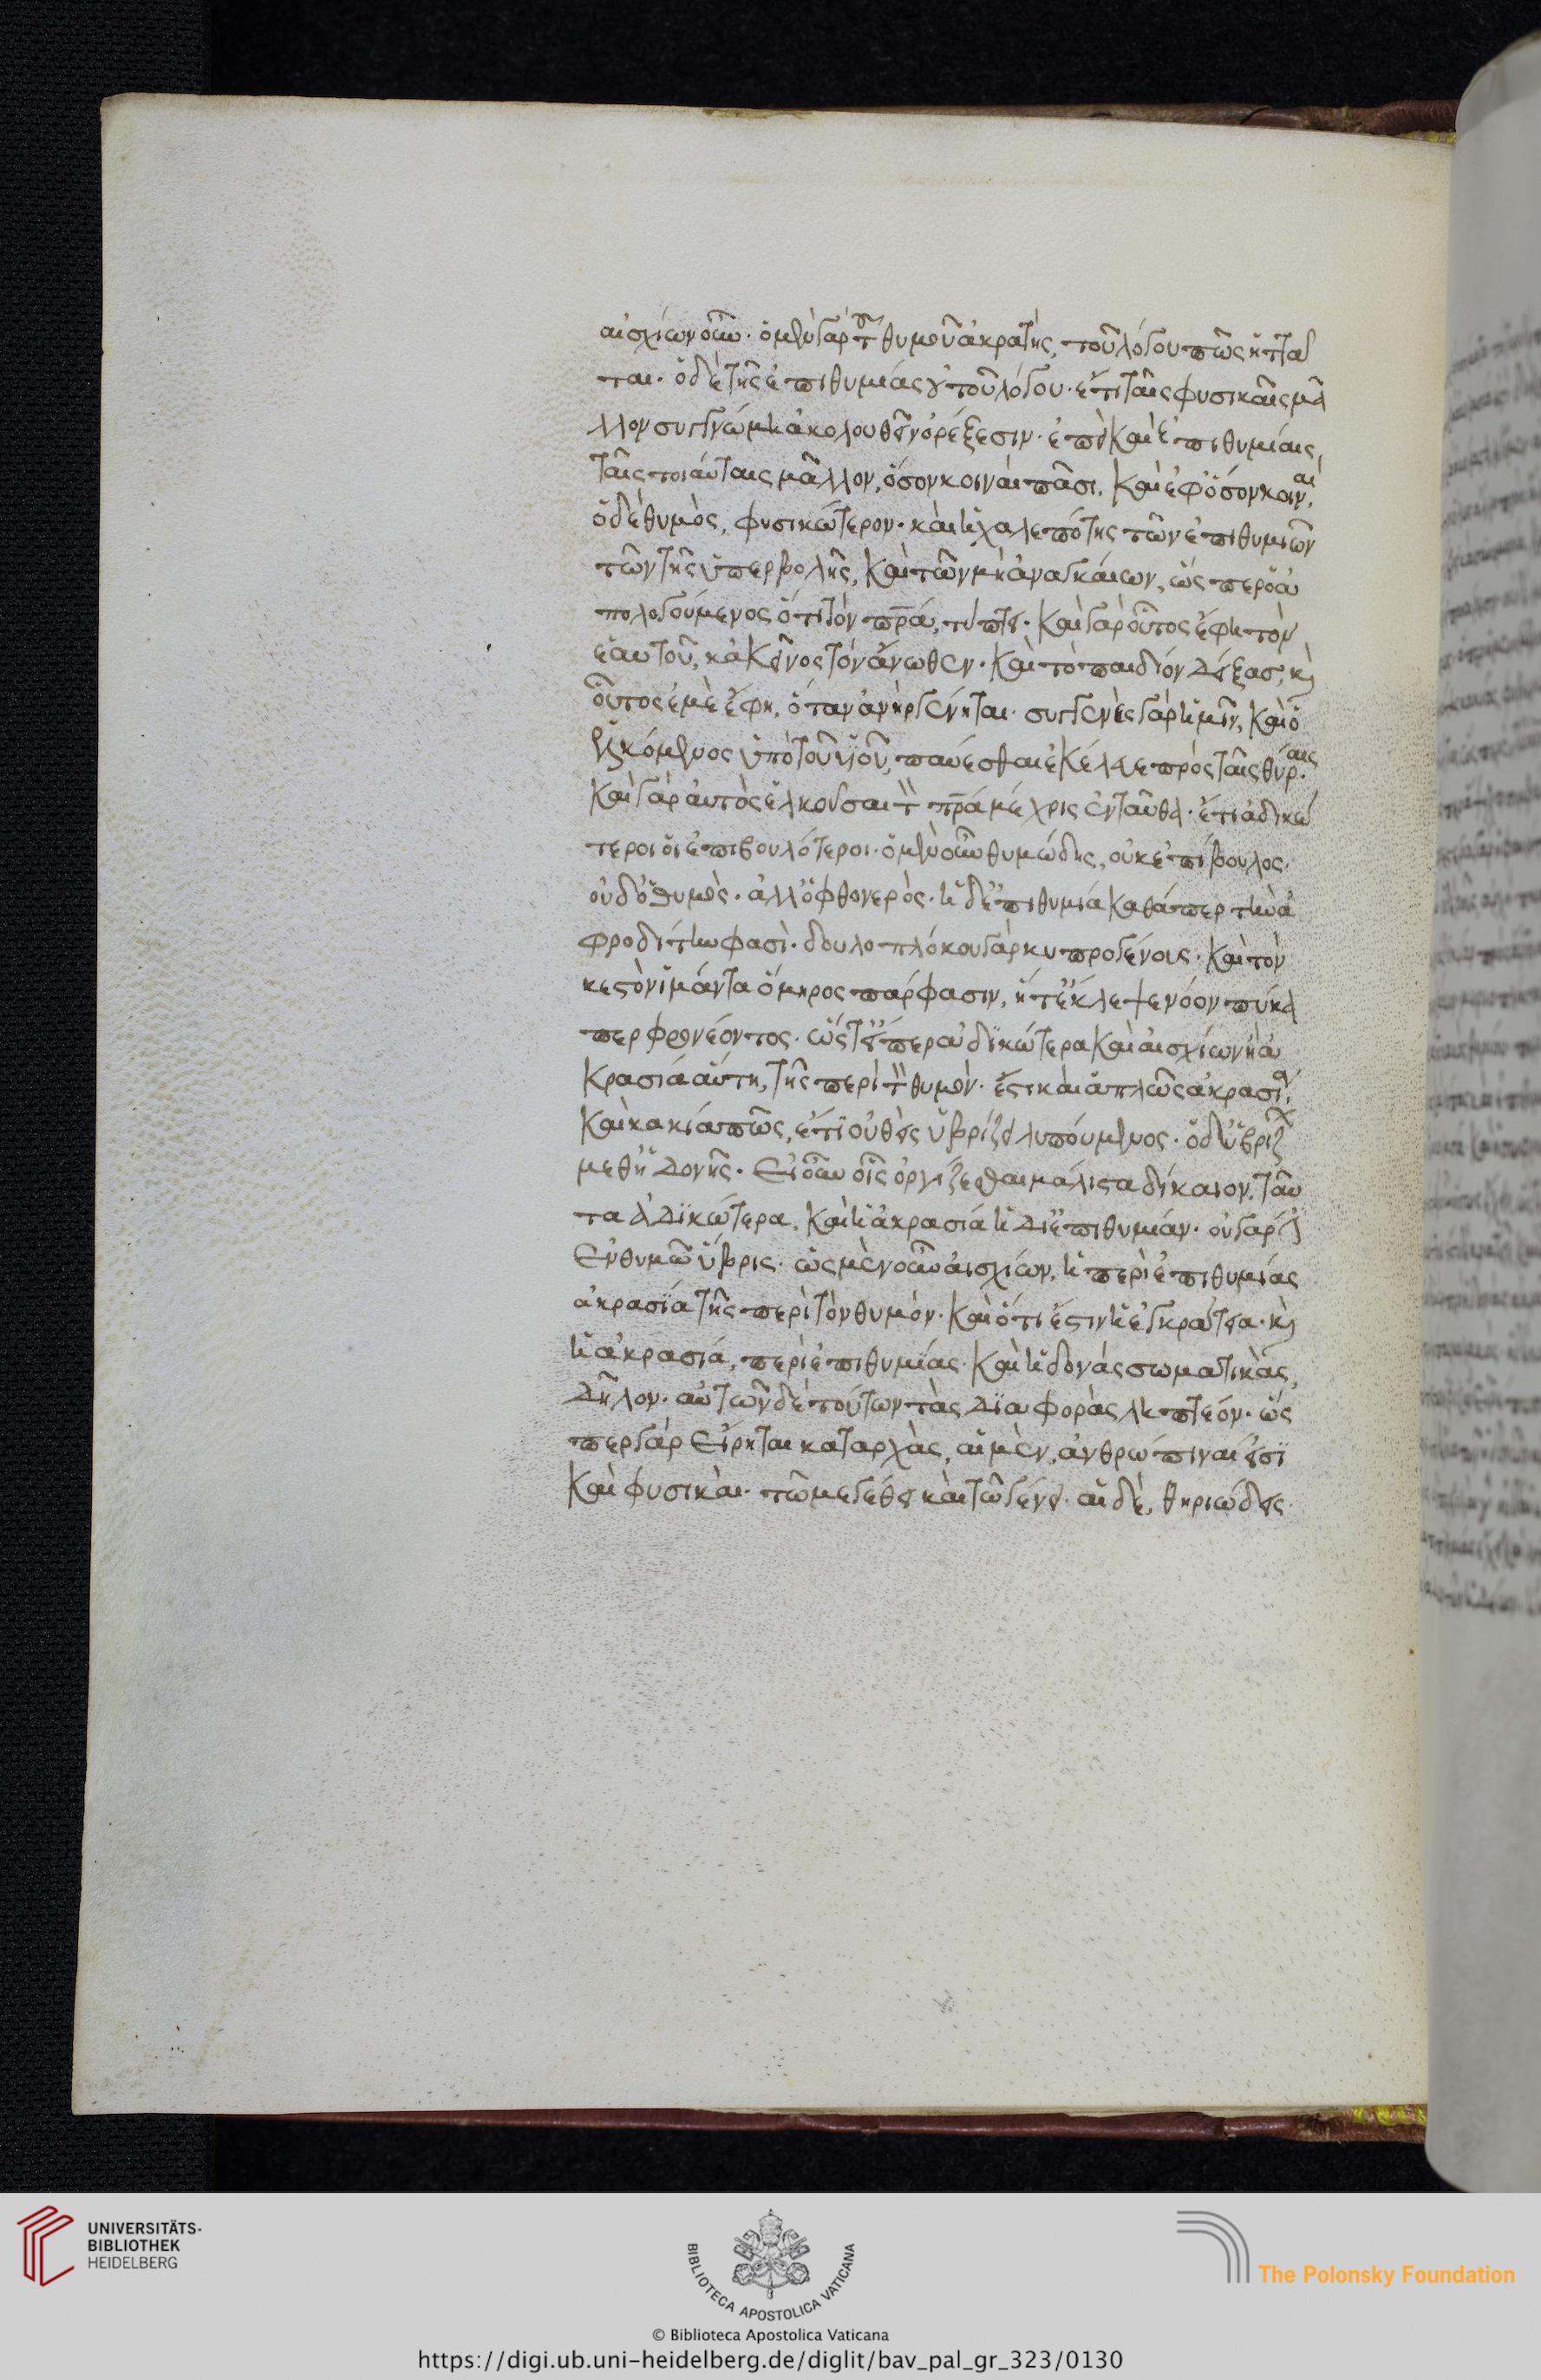 αἰσχίων οὖν. ὁ μὲν γὰρ τοῦ θυμοῦ ἀκρατὴς, τοῦ λόγου πῶς ἡττᾶ
ται. ὁ δὲ τῆς ἐπιθυμίας οὐ τοῦ λόγου. ἔτι ταῖς φυσικαῖς μᾶ
λλον συγγνώμη ἀκολουθεῖν ὀρέξεσιν. ἐπεὶ καὶ ἐπιθυμίαις,
ταῖς τοιαύταις μᾶλλον, ὅσον κοιναὶ πᾶσι, καὶ ἐφ' ὅσον κοιναί.
ὁ δὲ θυμὸς, φυσικώτερον. καὶ ἡ χαλεπότης τῶν ἐπιθυμιῶν
τῶν τῆς ὑπερβολῆς, καὶ τῶν μὴ ἀναγκαίων, ὥς περ ὁ ἀ
πολογούμενος ὅτι τὸν πρ̅α, τύπτει. καὶ γὰρ οὗτος ἔφη τὸν
ἑαυτοῦ, κἀκεῖνος τὸν ἄνωθεν. καὶ τὸ παιδίον δείξας, κὶ
οὗτος ἐμὲ ἔφη, ὅταν ἀνὴρ γένηται. συγγενὲς γὰρ ἡμῖν, καὶ ὁ
ἑλκόμενος ὑπὸ τοῦ υἱοῦ, παύεσθαι ἐκέλευε πρὸς ταῖς θύραις.
καὶ γὰρ αὐτὸς ἑλκοῦσαι τὸν πρ̅α μέχρις ἐνταῦθα. ἔτι ἀδικώ
τεροι οἱ ἐπιβουλότεροι. ὁ μὲν οὖν θυμώδης, οὐκ ἐπίβουλος.
οὐδ' ὁ θυμὸς. ἀλλ' ὁ φθονερὸς. ἡ δ' ἐπιθυμία καθάπερ τὴν ἀ
φροδίτην φασὶ. δουλοπλόκου γὰρ κυπρογένοις. καὶ τὸν
κεστὸν ἱμάντα ὅμηρος πάρφασιν, ἥ τ' ἔκλεψε νόον πύκα
περ φρονέοντος. ὥστ' εἴπερ ἀδικώτερα καὶ αἰσχίων ἡ ἀ
κρασία αὕτη, τῆς περὶ τὸν θυμὸν. ἔστι καὶ ἁπλῶς ἀκρασία,
καὶ κακία πῶς, ἔτι οὐθεὶς ὑβρίζει λυπούμενος. ὁ δ' ὑβρίζων
μεθ' ἡδονῆς. εἰ οὖν οἷς ὀργίζεσθαι μάλιστα δίκαιον, ταῦ
τα ἀδικώτερα, καὶ ἡ ἀκρασία ἡ δι' ἐπιθυμίαν. οὐ γάρ ἐστιν
ἐν θυμῶ ὕβρις. ὡς μὲν οὖν αἰσχίων, ἡ περὶ ἐπιθυμίας
ἀκρασία τῆς περὶ τὸν θυμόν. καὶ ὅτι ἔστιν ἡ ἐγκράτεια. κὶ
ἡ ἀκρασία, περὶ ἐπιθυμίας. καὶ ἡδονὰς σωματικὰς,
δῆλον. αὐτῶν δὲ τούτων τὰς διαφορὰς ληπτέον. ὥς
περ γὰρ εἴρηται καταρχὰς, αἱ μὲν, ἀνθρώπιναι εἰσὶ
καὶ φυσικαὶ. τῶ μεγέθει καὶ τῶ γένει. αἱ δὲ, θηριώδεις.
UNIVERSITÄTS-
BIBLIOTHEK
HEIDELBERG
BIBLIOTECA APOSTOLICA VATICANA
The Polonsky Foundation
© Biblioteca Apostolica Vaticana
https://digi.ub.uni-heidelberg.de/diglit/bav_pal_gr_323/0130